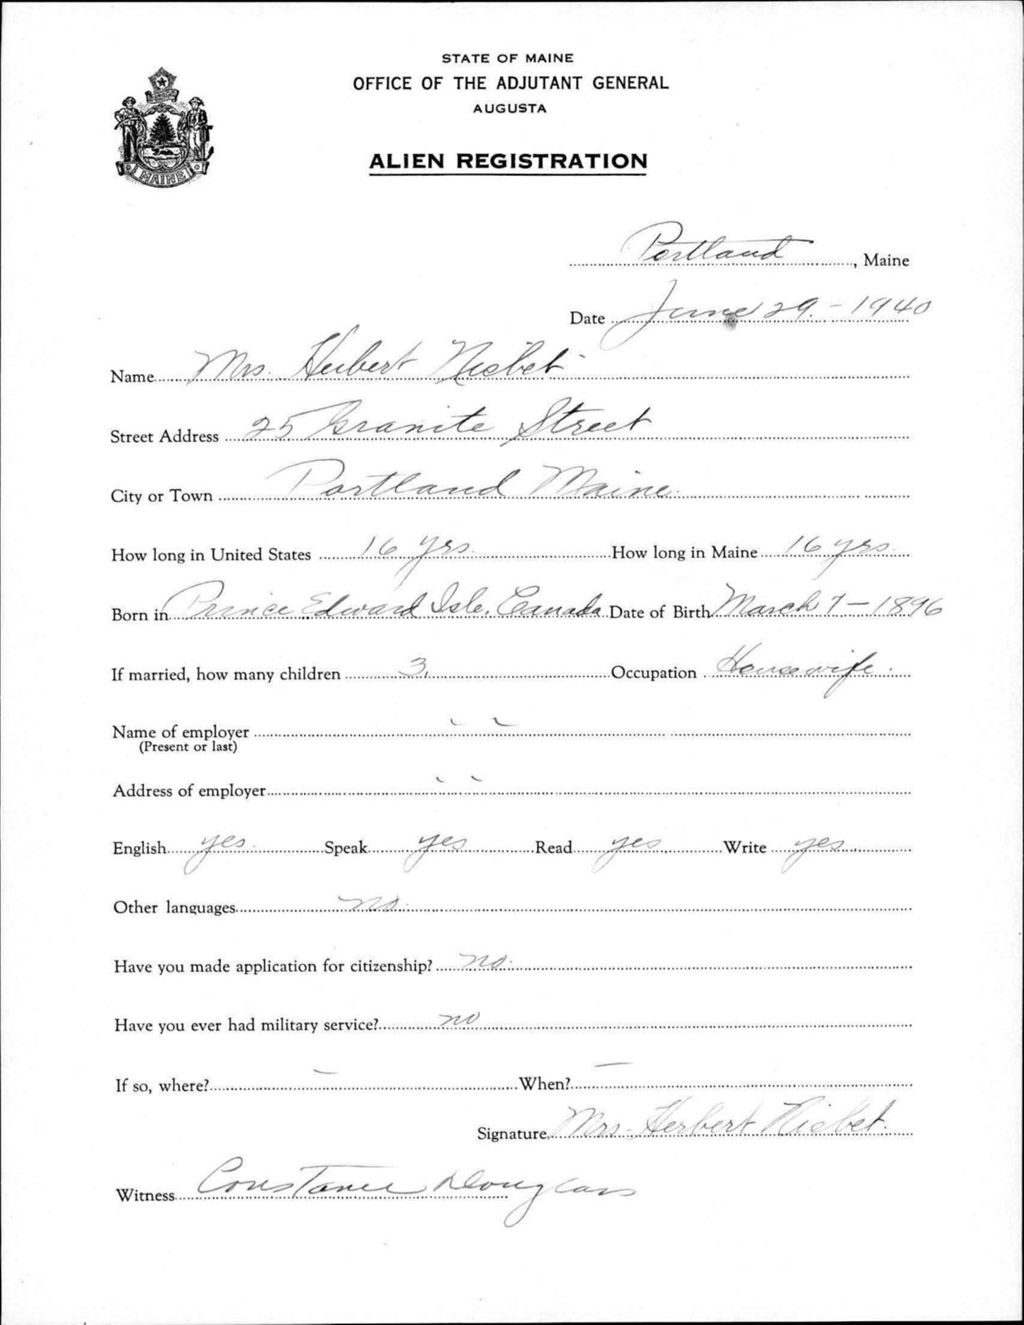 STATE OF MAINE
OFFICE OF THE ADJUTANT GENERAL
AUGUSTA
ALIEN REGISTRATION
MAINE
Portland, Maine
Date June 29. - 1940
Name Mrs. Herbert Nisbet
Street Address 25 Granite Street
City or Town Portland Maine.
How long in United States 16 yrs. How long in Maine 16 yrs.
Born in Prince Edward Isle, Canada Date of Birth March 7 - 1896
If married, how many children 3. Occupation Housewife.
Name of employer
(Present or last)
Address of employer
English yes. Speak yes Read yes Write yes
Other languages no.
Have you made application for citizenship? no.
Have you ever had military service? no
If so, where? - When? -
Signature Mrs - Herbert Nisbet.
Witness Constance Douglass